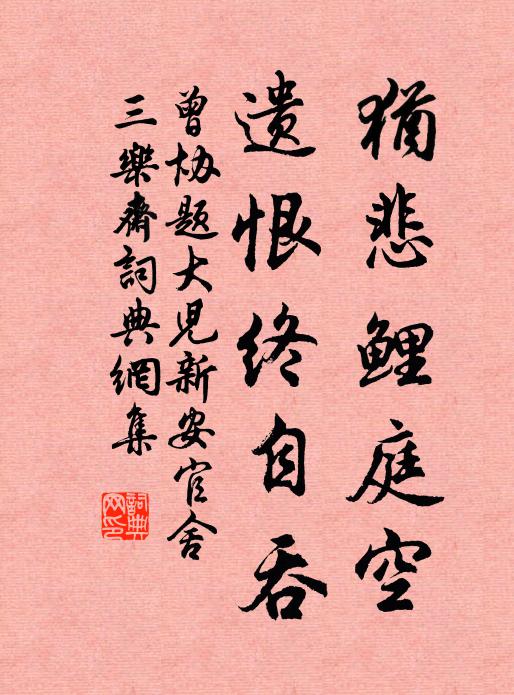 猶悲鯉庭空
遺恨終自吞
曾协題大児新安官舍
三樂齋詞典網集
詞典网印